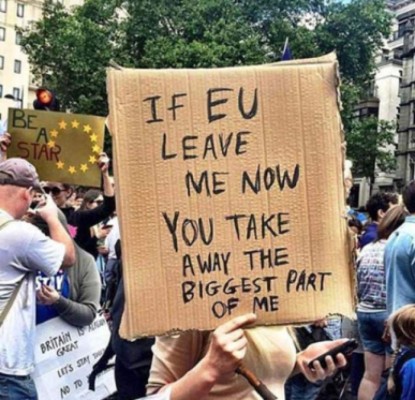 IF EU
LEAVE
ME NOW
YOU TAKE
AWAY THE
BIGGEST PART
OF ME
BE
A
STAR
BRITAIN IS ALREADY
GREAT
LET'S STAY
NO TO